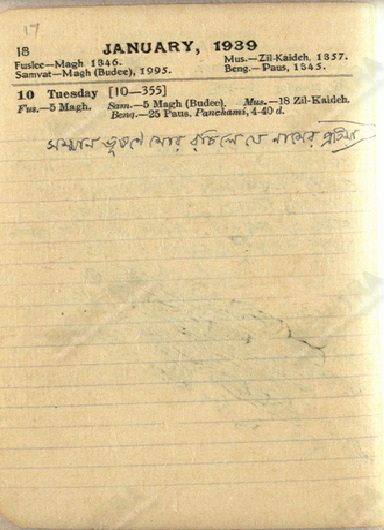 17
18 JANUARY, 1939
Fuslee—Magh 1346. Mus.—Zil-Kaideh, 1357.
Samvat—Magh (Budee), 1995. Beng.—Paus, 1345.
10 Tuesday [10—355]
Fus.—5 Magh. Sam.—5 Magh (Budee). Mus.—18 Zil-Kaideh.
Beng.—25 Paus, Panchami, 4-40 d.
সম্মান ভূষণে মোরে রচিলে যে নামের প্রতিমা